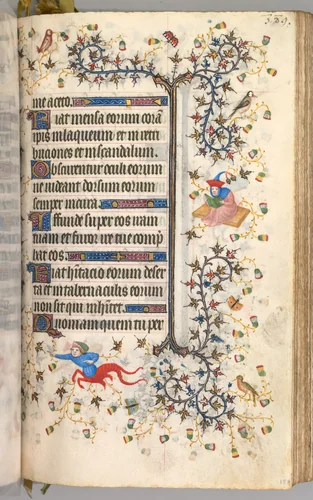 329.
me aceto.
Fiat mensa eorum corā
ipis in laqueum et in retri
buciones et in scandalum.
Obscurentur oculi eorum
ne uidant dorsum eorum
semper incura
Effunde super eos iram
tuam et furor ire tue comp̄
hat eos.
Fiat hitacio eorum deser
ta et in tabernaculis eorum
non sit qui inhitet.
Quoniam quem tu per